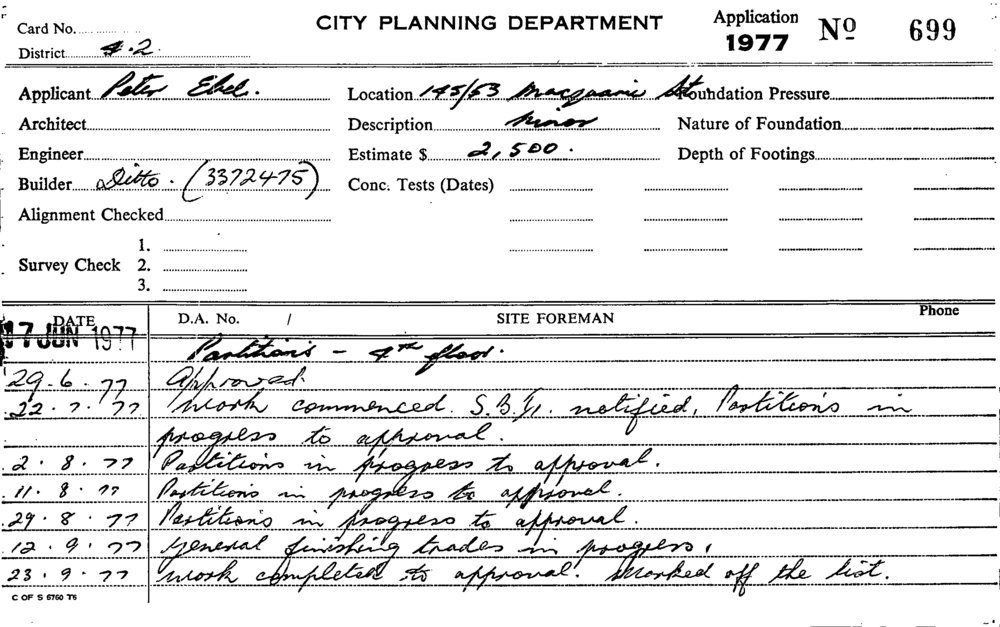 Card No.
District 4.2
CITY PLANNING DEPARTMENT
Application
1977 Nº 699
Applicant Peter Ebel.
Location 145/53 Macquarie St
Foundation Pressure
Architect
Description Minor
Nature of Foundation
Engineer
Estimate $ 2,500.
Depth of Footings
Builder Ditto. (3372475)
Conc. Tests (Dates)
Alignment Checked
Survey Check
1.
2.
3.
DATE D.A. No. / SITE FOREMAN Phone
17 JUN 1977
Partitions - 4th floor.
29.6.77 Approved.
22.7.77 Work commenced. notified, Partitions in
progress to approval.
2.8.77 Partitions in progress to approval.
11.8.77 Partitions in progress to approval.
29.8.77 Partitions in progress to approval.
12.9.77 General finishing trades in progress.
23.9.77 Work completed to approval. Marked off the list.
C OF S 6760 T6